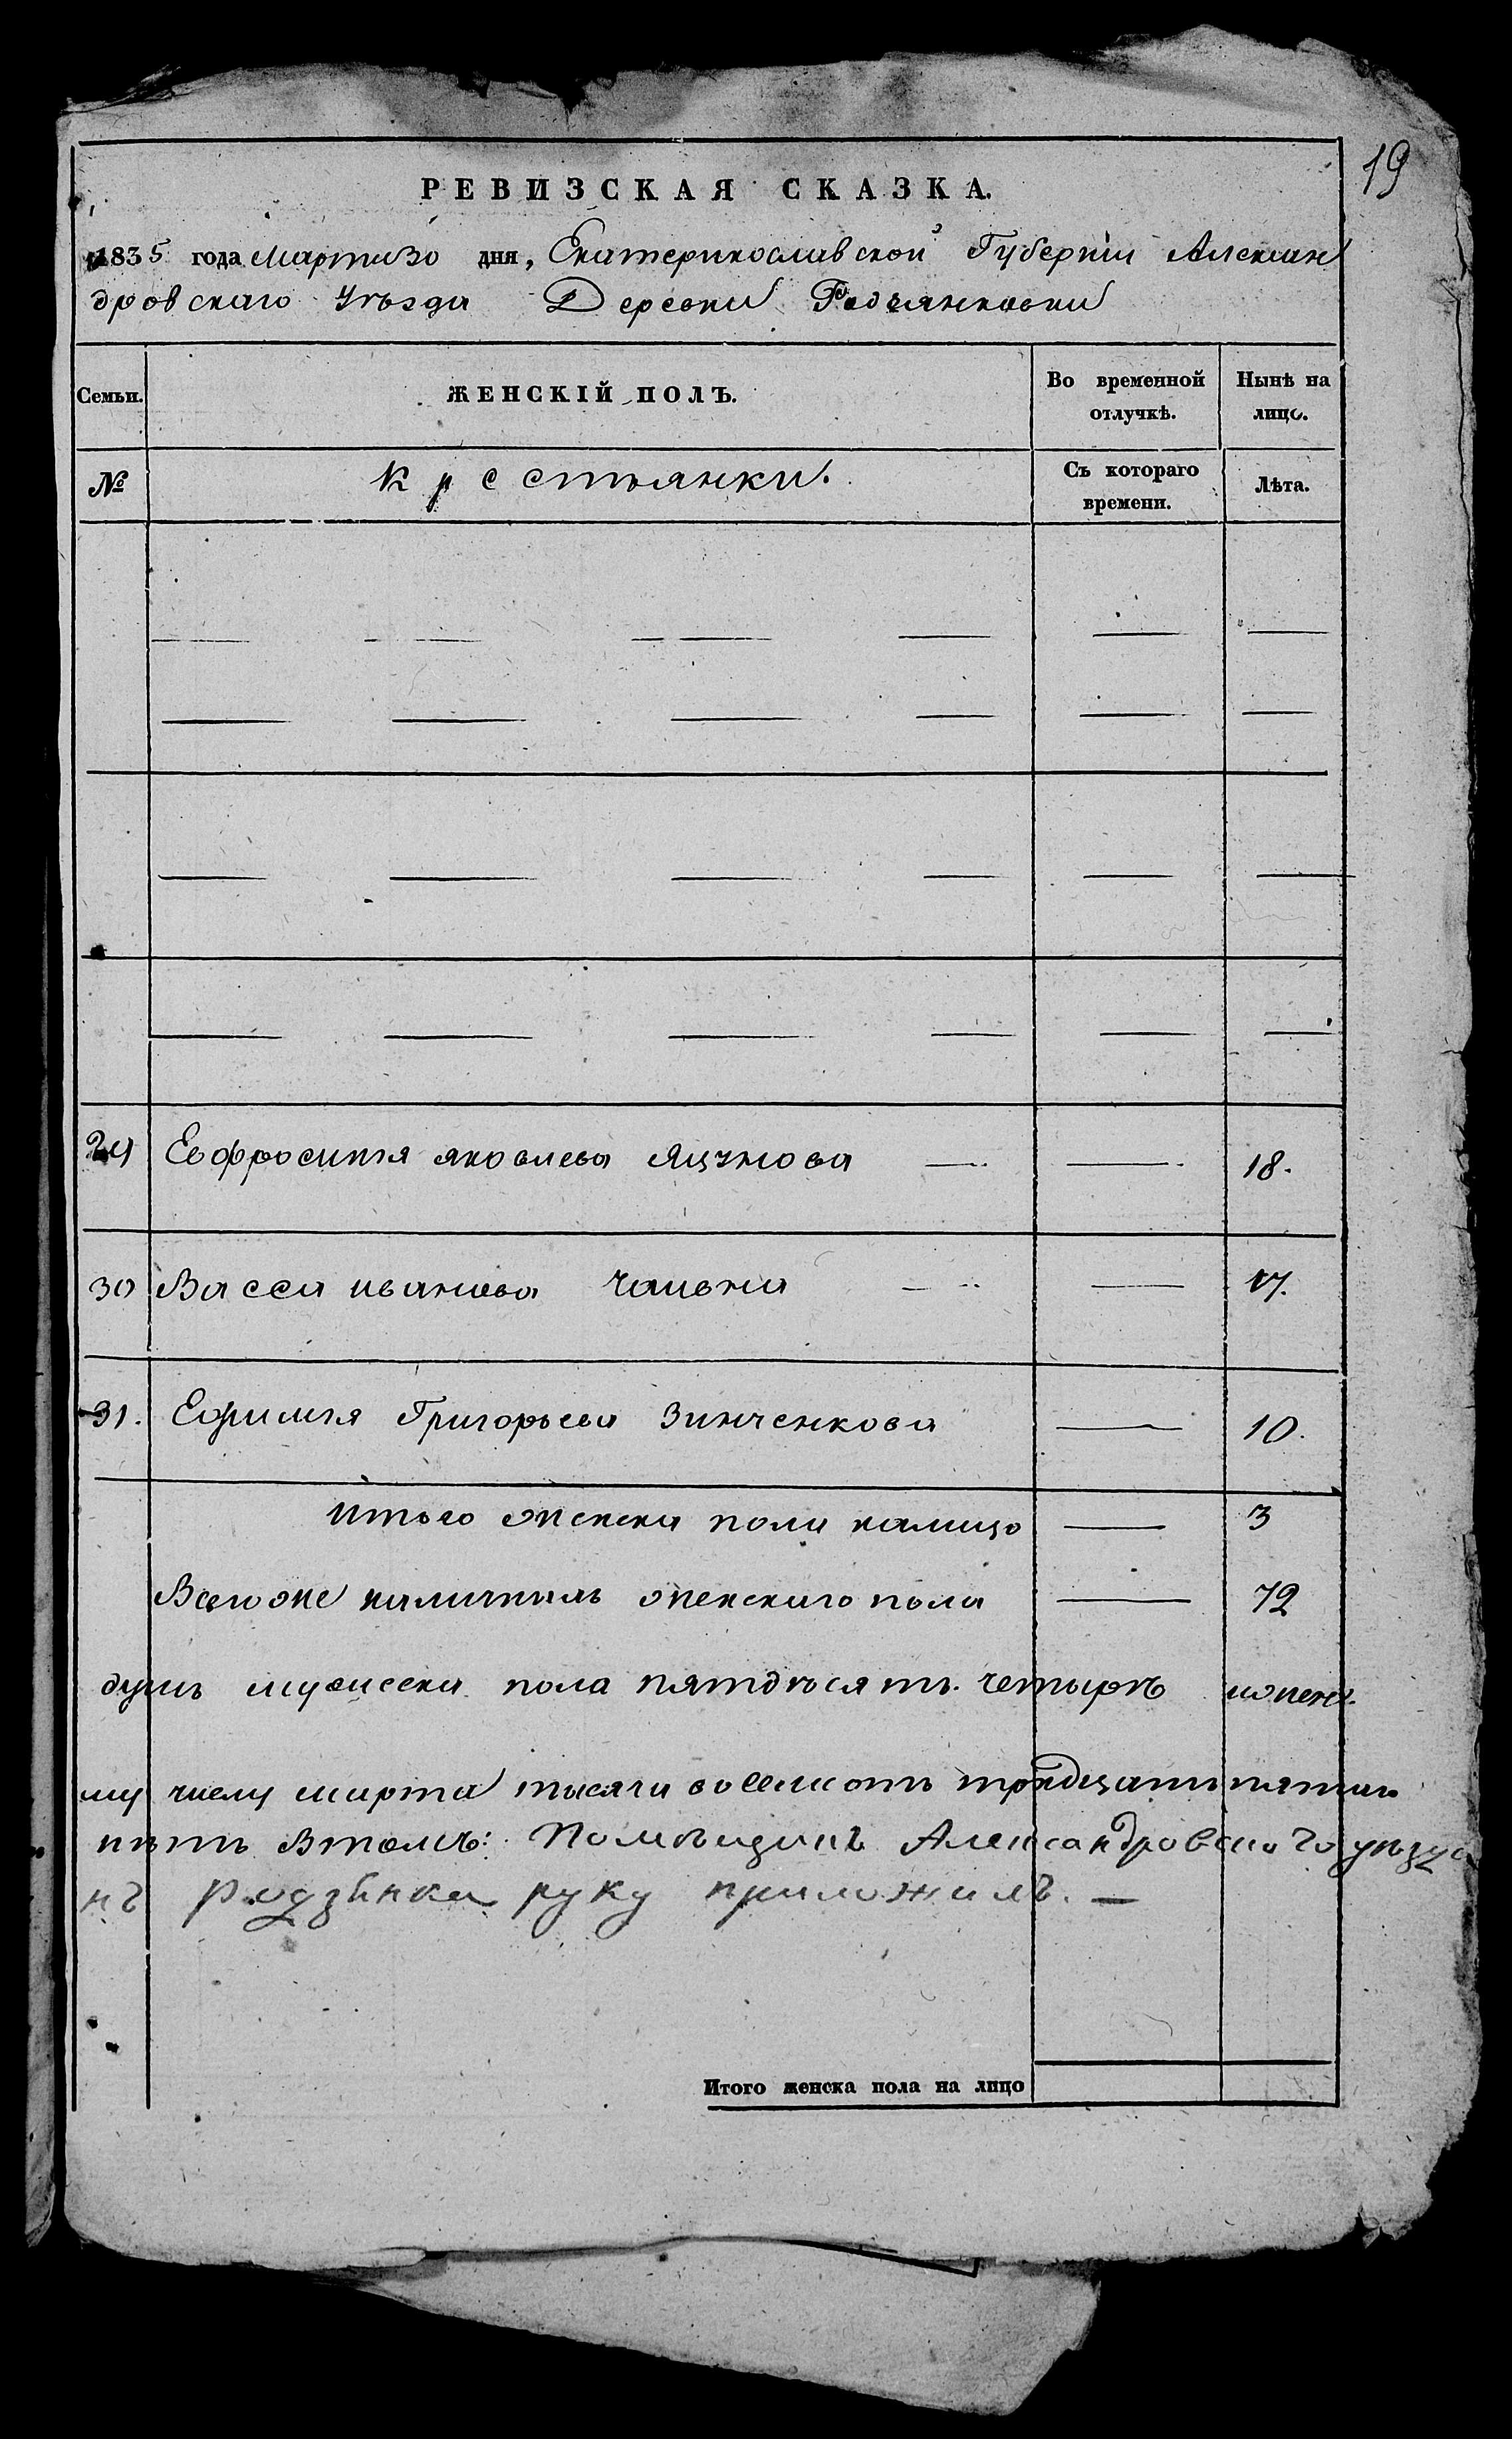 19
РЕВИЗСКАЯ СКАЗКА.
1835 года Марта 30 дня, Екатеринославской Губернiи Алексан
дровскаго Уѣзда Деревни
Семьи. ЖЕНСКIЙ ПОЛЪ. Во временной отлучкѣ. Нынѣ на лицо.
№ Крестьянки. Съ котораго времени. Лѣта.
29 Евфросинiя Яковлева Яцунова — — 18.
30 Васса Иванова — — 17.
31. Ефимiя Григорьева Зинченкова — 10.
Итого женска пола налицо — 3
Всего же наличныхъ женскаго пола — 72
душъ мужеска пола пятдѣсятъ четыре
му числу марта тысяча восемсотъ тридцать пятаго
нѣтъ Втомъ: Помѣщикъ Александровскаго уѣзда
руку приложилъ. —
Итого женска пола на лицо